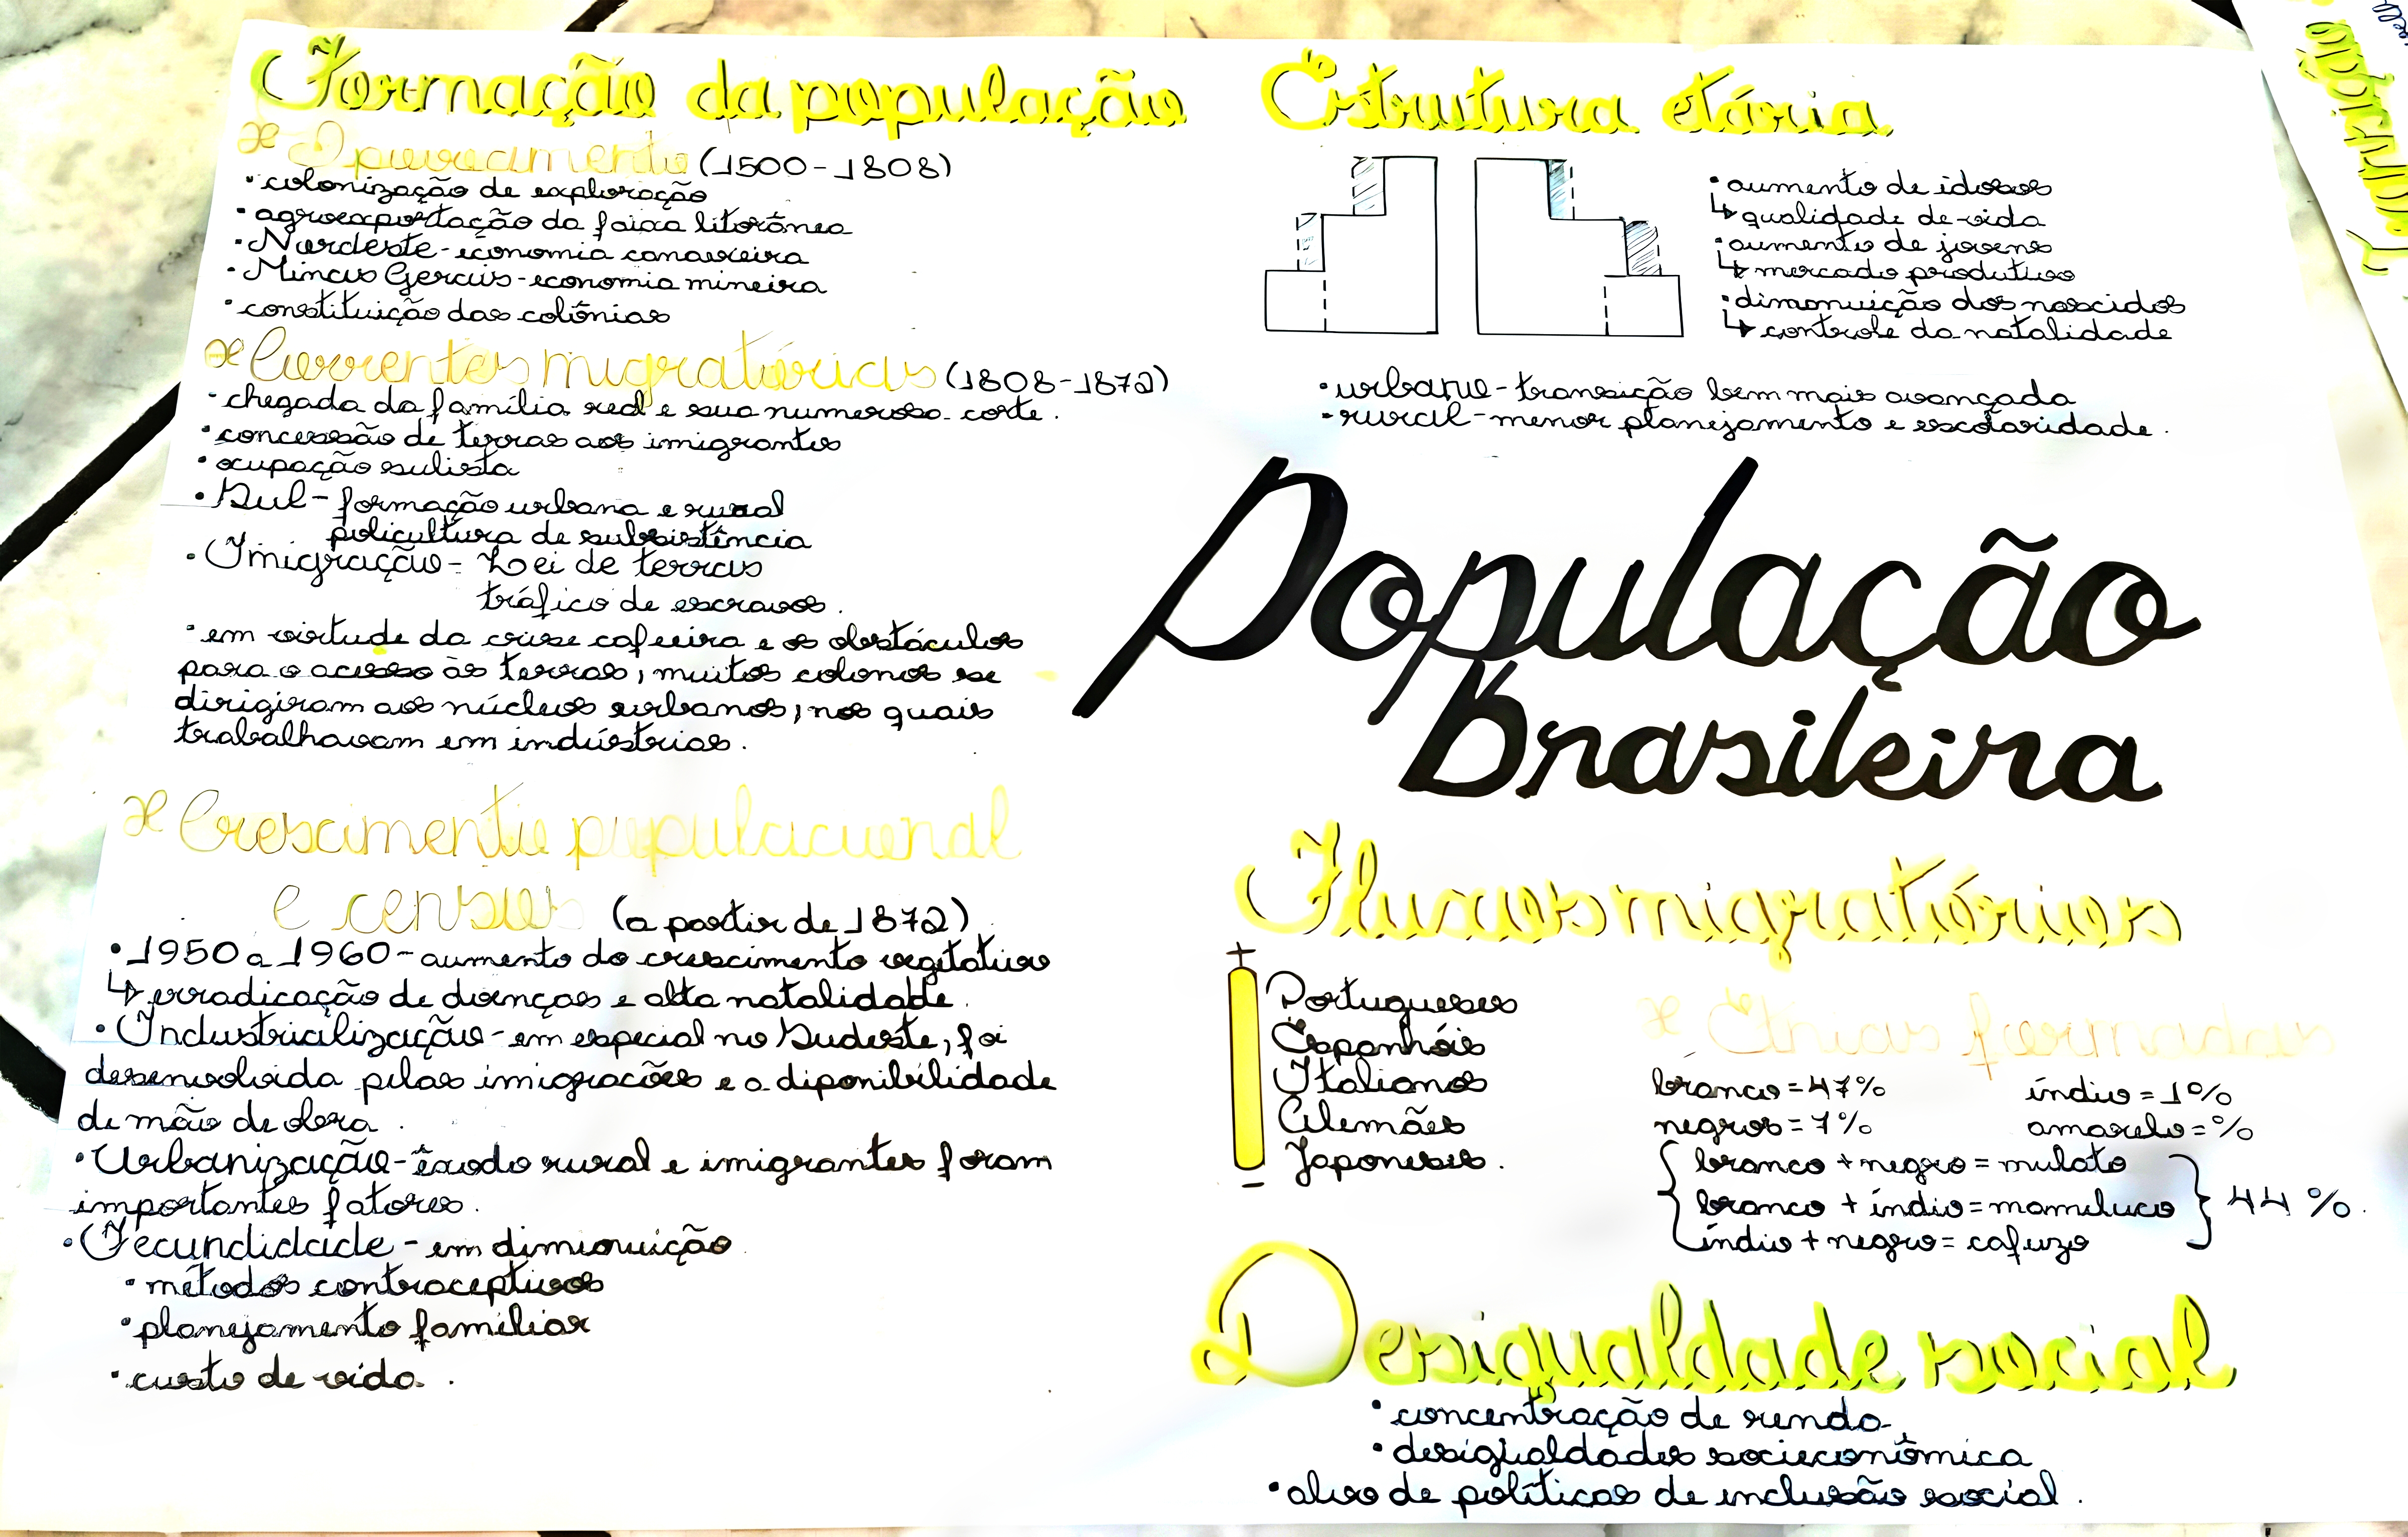 Formação da população
* O povoamento (1500-1808)
• colonização de exploração
• agroexportação da faixa litorânea
• Nordeste - economia canavieira
• Minas Gerais - economia mineira
• constituição das colônias
* Correntes migratórias (1808-1872)
• chegada da família real e sua numerosa corte.
• concessão de terras aos imigrantes
• ocupação sulista
• Sul - formação urbana e rural
policultura de subsistência
• Imigração - Lei de terras
tráfico de escravos.
• em virtude da crise cafeeira e os obstáculos
para o acesso às terras, muitos colonos se
dirigiram aos núcleos urbanos, nos quais
trabalhavam em indústrias.
* Crescimento populacional
e censos (a partir de 1872)
• 1950 a 1960 - aumento do crescimento vegetativo
↳ erradicação de doenças e alta natalidade.
• Industrialização - em especial no Sudeste, foi
desenvolvida pelas imigrações e a diponibilidade
de mão de obra.
• Urbanização - êxodo rural e imigrantes foram
importantes fatores.
• Fecundidade - em diminuição
• métodos contraceptivos
• planejamento familiar
• custo de vida.
Estrutura etária
• aumento de idosos
↳ qualidade de vida
• aumento de jovens
↳ mercado produtivo
• dimonuição dos nascidos
↳ controle da natalidade
• urbano - transição bem mais avançada
• rural - menor planejamento e escolaridade.
População
Brasileira
Fluxos migratórios
+
Portugueses
Espanhóis
Italianos
Alemães
Japoneses.
-
* Etnias formadas
branco = 47% índio = 1%
negros = 7% amarelo = %
branco + negro = mulato
branco + índio = mameluco } 44%.
índio + negro = cafuzo
Desigualdade social
• concentração de renda
• desigualdades socieconômica
• alvo de políticas de inclusão social.